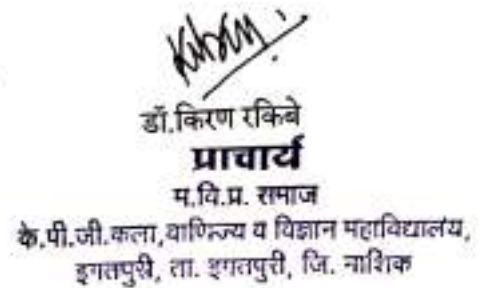 डॉ.किरण रकिबे
प्राचार्य
म.वि.प्र. समाज
के.पी.जी.कला,वाणिज्य व विज्ञान महाविद्यालय,
इगतपुरी, ता. इगतपुरी, जि. नाशिक